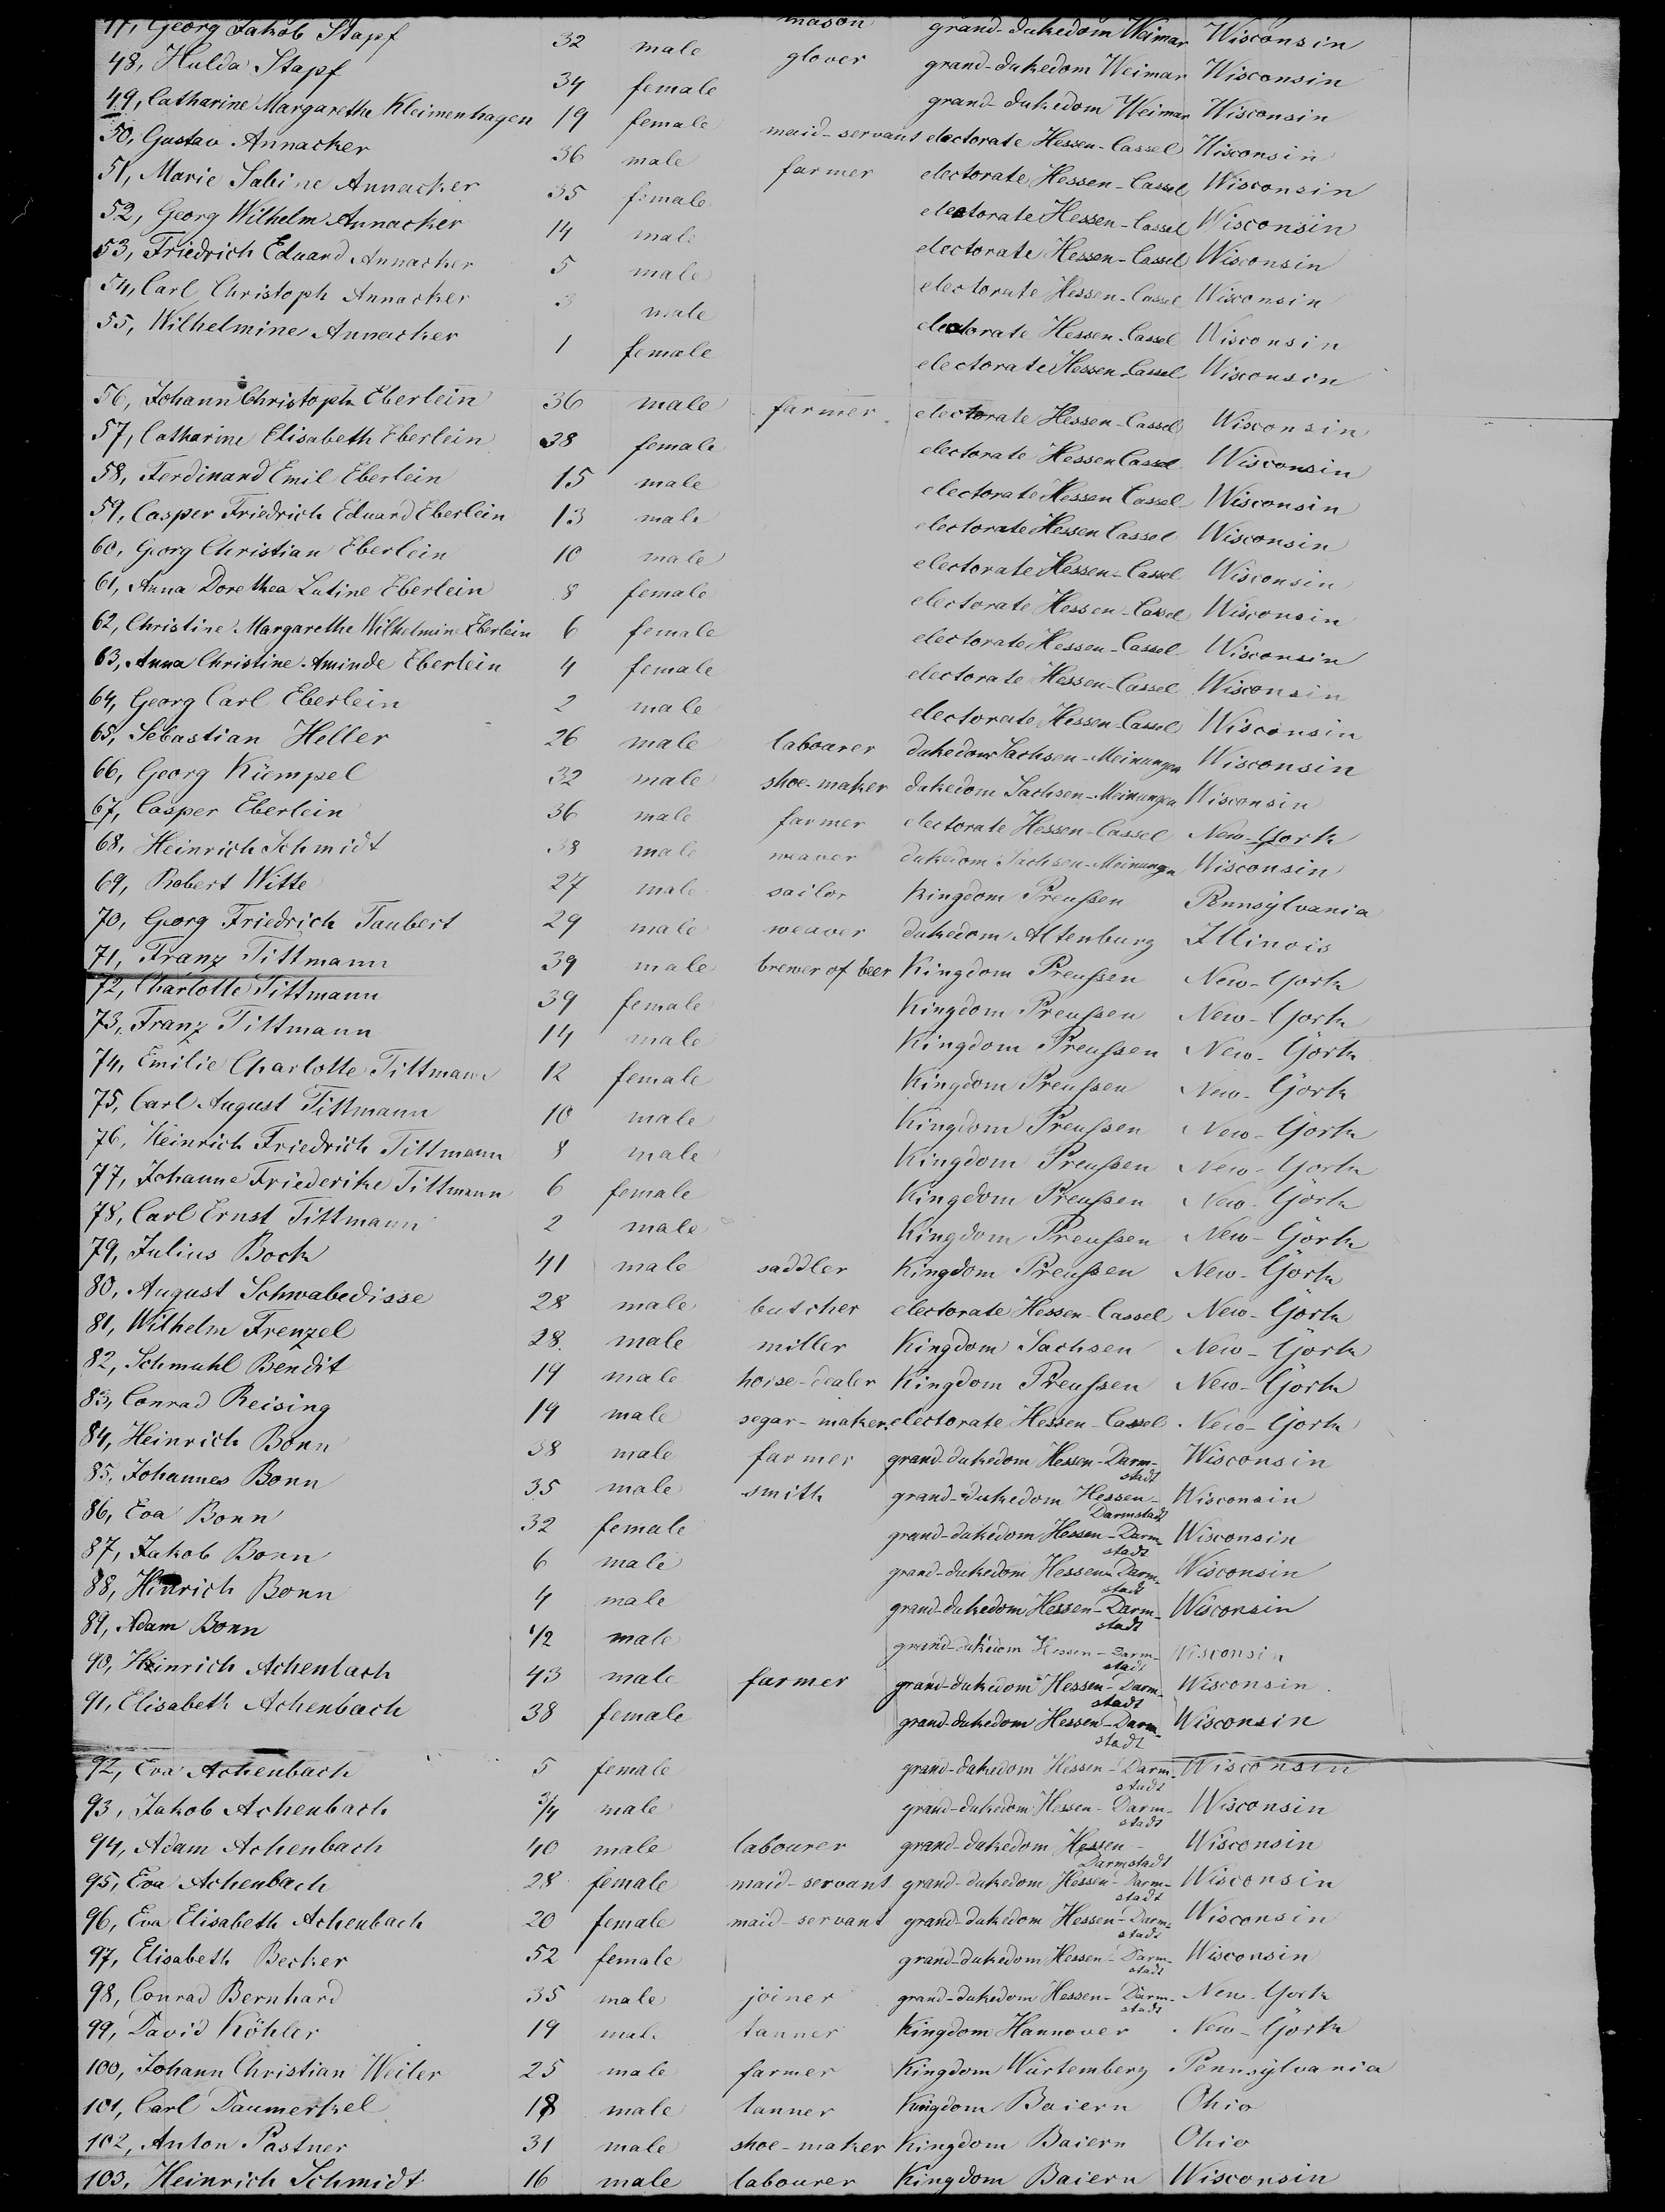 mason grand-dukedom Weimar Wisconsin
47, Georg Jakob Stapf 32 male glover grand-dukedom Weimar Wisconsin
48, Hulda Stapf 34 female grand-dukedom Weimar Wisconsin
49, Catharine Margarethe Kleimenhagen 19 female maid-servant electorate Hessen-Cassel Wisconsin
50, Gustav Annacker 36 male farmer electorate Hessen-Cassel Wisconsin
51, Marie Sabine Annacker 35 female electorate Hessen-Cassel Wisconsin
52, Georg Wilhelm Annacker 14 male electorate Hessen-Cassel Wisconsin
53, Friedrich Eduard Annacker 5 male electorate Hessen-Cassel Wisconsin
54, Carl Christoph Annacker 3 male electorate Hessen-Cassel Wisconsin
55, Wilhelmine Annacker 1 female electorate Hessen-Cassel Wisconsin
56, Johann Christoph Eberlein 36 male farmer electorate Hessen-Cassel Wisconsin
57, Catharine Elisabeth Eberlein 38 female electorate Hessen Cassel Wisconsin
58, Ferdinand Emil Eberlein 15 male electorate Hessen Cassel Wisconsin
59, Casper Friedrich Eduard Eberlein 13 male electorate Hessen Cassel Wisconsin
60, Georg Christian Eberlein 10 male electorate Hessen-Cassel Wisconsin
61, Anna Dorethea Lutine Eberlein 8 female electorate Hessen-Cassel Wisconsin
62, Christine Margarethe Wilhelmine Eberlein 6 female electorate Hessen-Cassel Wisconsin
63, Anna Christine Aminde Eberlein 4 female electorate Hessen-Cassel Wisconsin
64, Georg Carl Eberlein 2 male electorate Hessen-Cassel Wisconsin
65, Sebastian Heller 26 male labourer dukedom Sachsen-Meinungen Wisconsin
66, Georg Kümpel 32 male shoe-maker dukedom Sachsen-Meinungen Wisconsin
67, Casper Eberlein 36 male farmer electorate Hessen-Cassel New-York
68, Heinrich Schmidt 38 male weaver dukedom Sachsen-Meinungen Wisconsin
69, Robert Witte 27 male sailor Kingdom Preußen Pennsylvania
70, Georg Friedrich Taubert 29 male weaver dukedom Altenburg Illinois
71, Franz Tittmann 39 male brewer of beer Kingdom Preußen New-York
72, Charlotte Tittmann 39 female Kingdom Preußen New-York
73, Franz Tittmann 14 male Kingdom Preußen New-York
74, Emilie Charlotte Tittmann 12 female Kingdom Preußen New-York
75, Carl August Tittmann 10 male Kingdom Preußen New-York
76, Heinrich Friedrich Tittmann 8 male Kingdom Preußen New-York
77, Johanne Friederike Tittmann 6 female Kingdom Preußen New-York
78, Carl Ernst Tittmann 2 male Kingdom Preußen New-York
79, Julius Bock 41 male saddler Kingdom Preußen New-York
80, August Schwabedisse 28 male butcher electorate Hessen-Cassel New-York
81, Wilhelm Frenzel 28 male miller Kingdom Sachsen New-York
82, Schmuhl Bendit 19 male horse-dealer Kingdom Preußen New-York
83, Conrad Reising 19 male segar-maker electorate Hessen-Cassel New-York
84, Heinrich Bonn 38 male farmer grand-dukedom Hessen-Darm-stadt Wisconsin
85, Johannes Bonn 35 male smith grand-dukedom Hessen-Darmstadt Wisconsin
86, Eva Bonn 32 female grand-dukedom Hessen-Darm-stadt Wisconsin
87, Jakob Bonn 6 male grand-dukedom Hessen-Darm-stadt Wisconsin
88, Hinrich Bonn 4 male grand-dukedom Hessen-Darm-stadt Wisconsin
89, Adam Bonn 1/2 male grand-dukedom Hessen-Darm-stadt Wisconsin
90, Heinrich Achenbach 43 male farmer grand-dukedom Hessen-Darm-stadt Wisconsin
91, Elisabeth Achenbach 38 female grand-dukedom Hessen-Darm-stadt Wisconsin
92, Eva Achenbach 5 female grand-dukedom Hessen-Darm-stadt Wisconsin
93, Jakob Achenbach 3/4 male grand-dukedom Hessen-Darm-stadt Wisconsin
94, Adam Achenbach 40 male labourer grand-dukedom Hessen-Darmstadt Wisconsin
95, Eva Achenbach 28 female maid-servant grand-dukedom Hessen-Darm-stadt Wisconsin
96, Eva Elisabeth Achenbach 20 female maid-servant grand-dukedom Hessen-Darm-stadt Wisconsin
97, Elisabeth Becker 52 female grand-dukedom Hessen-Darm-stadt Wisconsin
98, Conrad Bernhard 35 male joiner grand-dukedom Hessen-Darm-stadt New-York
99, David Köhler 19 male tanner Kingdom Hannover New-York
100, Johann Christian Weiler 25 male farmer Kingdom Würtemberg Pennsylvania
101, Carl Daumerkel 18 male tanner Kingdom Baiern Ohio
102, Anton Pastner 31 male shoe-maker Kingdom Baiern Ohio
103, Heinrich Schmidt 16 male labourer Kingdom Baiern Wisconsin